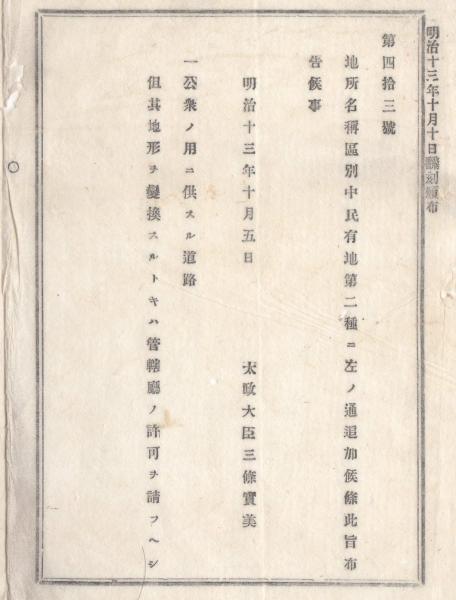 明治十三年十月十日飜刻頒布
第四拾三號
地所名稱區別中民有地第二種ニ左ノ通追加候條此旨布
告候事
明治十三年十月五日
太政大臣三條實美
一公衆ノ用ニ供スル道路
但其地形ヲ變換スルトキハ管轄廳ノ許可ヲ請フヘシ